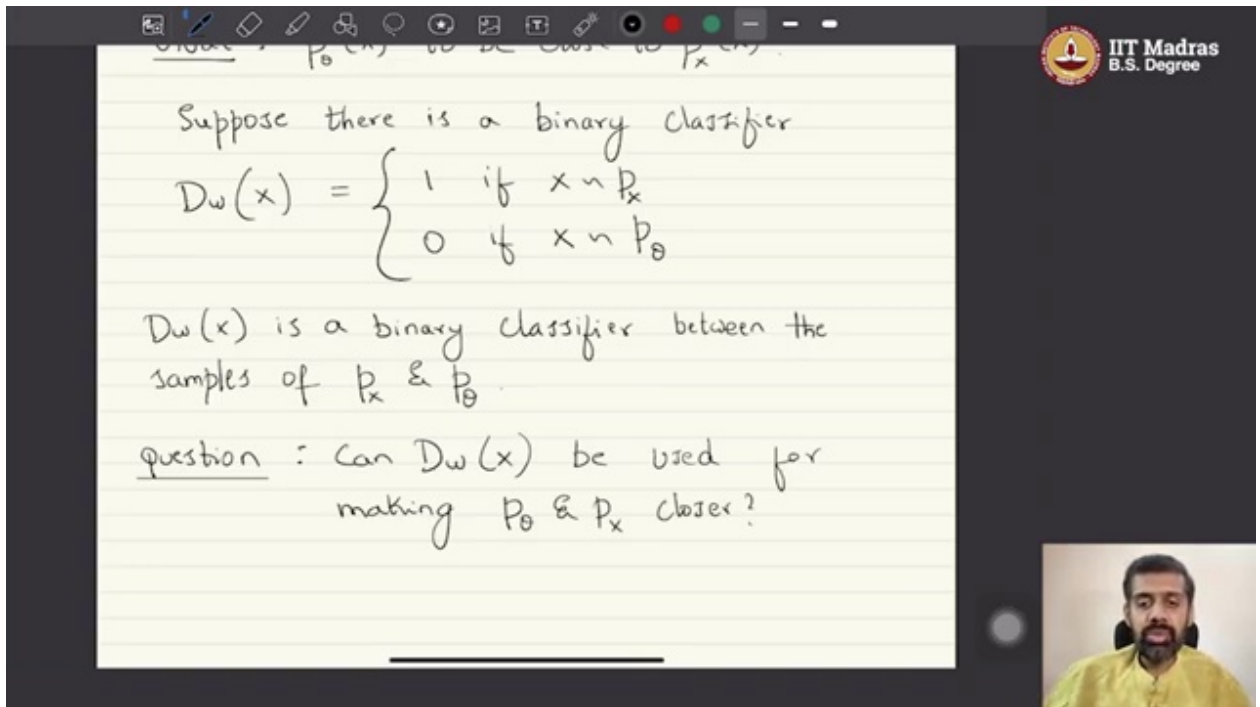 pθ(x) to be close to px(x).
IIT Madras
B.S. Degree
Suppose there is a binary classifier
Dw(x) = { 1 if x ~ px
0 if x ~ pθ
Dw(x) is a binary classifier between the
samples of px & pθ.
question : Can Dw(x) be used for
making pθ & px closer?